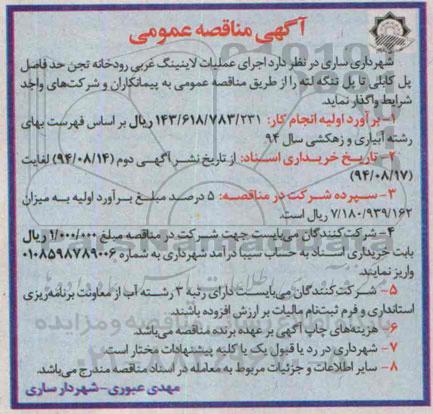 آگهی مناقصه عمومی
شهرداری ساری در نظر دارد اجرای عملیات لاینینگ غربی رودخانه تجن حد فاصل
پل کابلی تا پل تنگه لته را از طریق مناقصه عمومی به پیمانکاران و شرکت‌های واجد
شرایط واگذار نماید.
۱- برآورد اولیه انجام کار: ۱۴۳/۶۱۸/۷۸۳/۲۳۱ ریال بر اساس فهرست بهای
رشته آبیاری و زهکشی سال ۹۴
۲- تاریخ خریداری اسناد: از تاریخ نشر آگهی دوم (۹۴/۰۸/۱۴) لغایت
(۹۴/۰۸/۱۷)
۳- سپرده شرکت در مناقصه: ۵ درصد مبلغ برآورد اولیه به میزان
۷/۱۸۰/۹۳۹/۱۶۲ ریال است.
۴- شرکت کنندگان می‌بایست جهت شرکت در مناقصه مبلغ ۱/۰۰۰/۰۰۰ ریال
بابت خریداری اسناد به حساب سیبا درآمد شهرداری به شماره ۰۱۰۸۵۹۸۷۸۹۰۰۶
واریز نمایند.
۵- شرکت کنندگان می‌بایست دارای رتبه ۳ رشته آب از معاونت برنامه‌ریزی
استانداری و فرم ثبت‌نام مالیات بر ارزش افزوده باشند.
۶- هزینه‌های چاپ آگهی بر عهده برنده مناقصه می‌باشد.
۷- شهرداری در رد یا قبول یک یا کلیه پیشنهادات مختار است.
۸- سایر اطلاعات و جزئیات مربوط به معامله در اسناد مناقصه مندرج می‌باشد.
مهدی عبوری-شهردار ساری